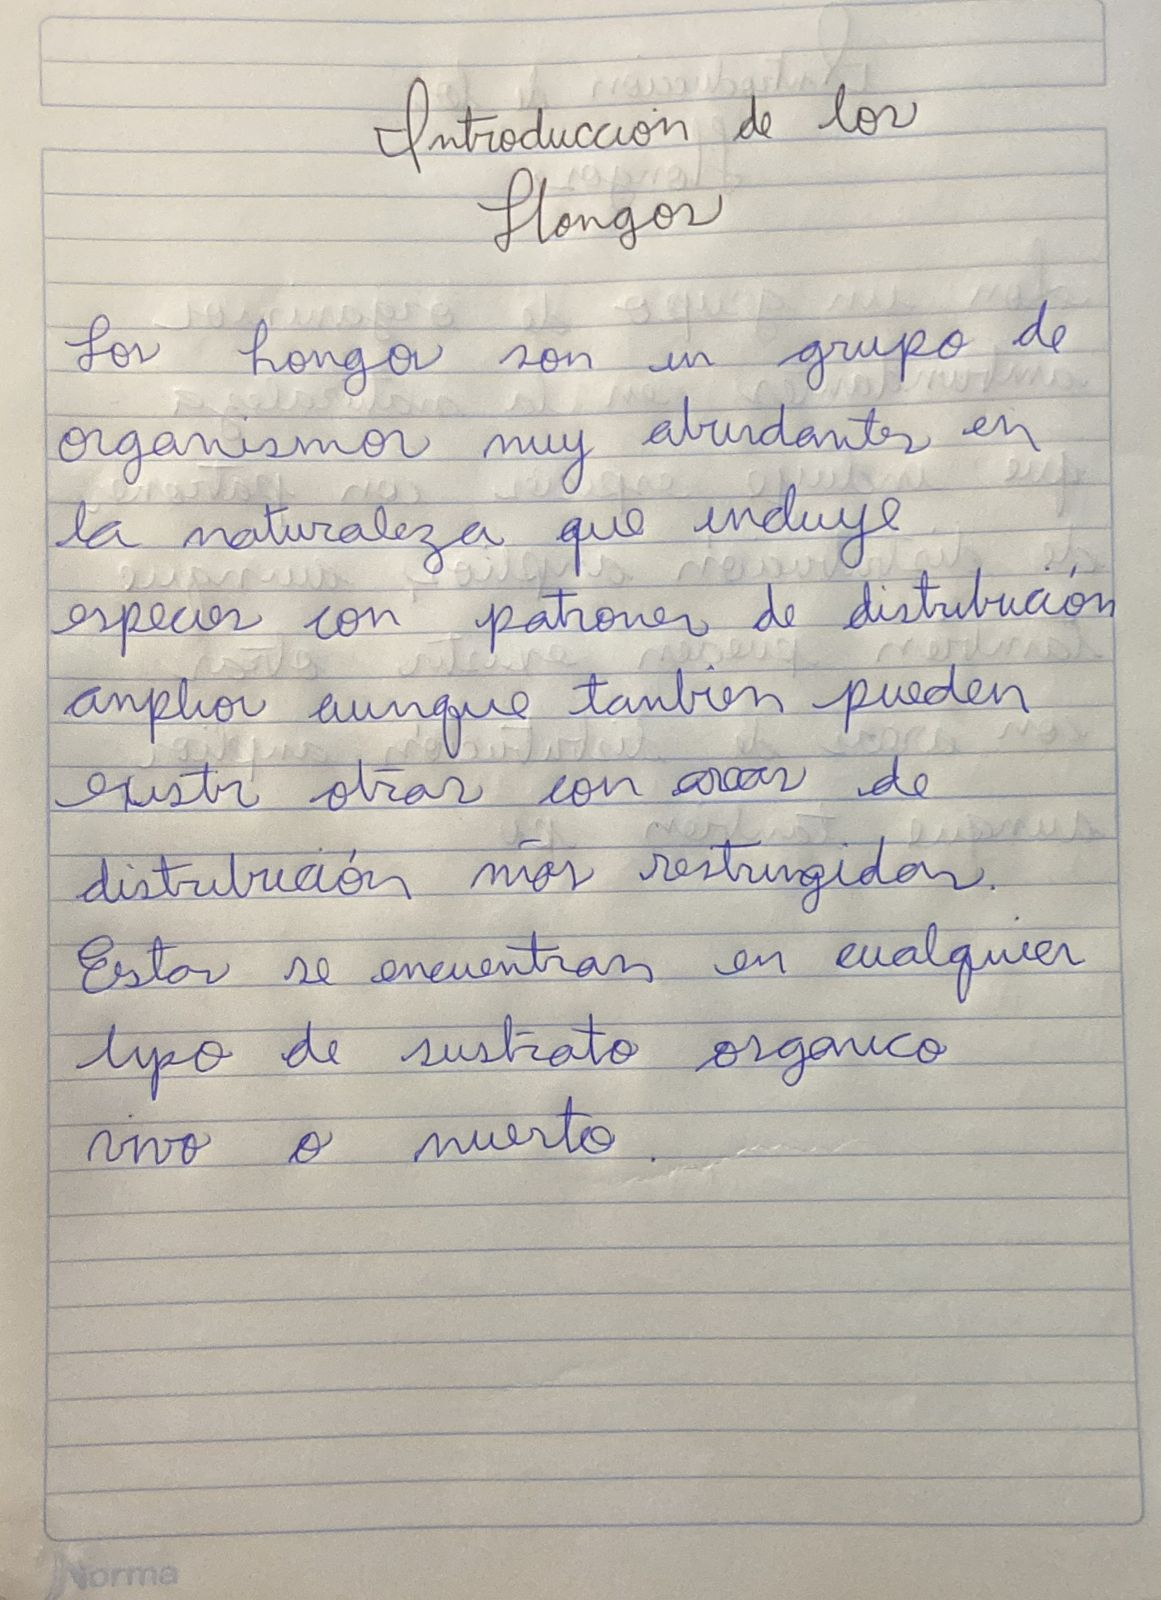 Introducción de los
Hongos
Los hongos son un grupo de
organismos muy abundantes en
la naturaleza que incluye
especies con patrones de distribución
anplios aunque tanbien pueden
existir otras con areas de
distribución más restringidas.
Estos se encuentran en cualquier
tipo de sustrato organico
vivo o muerto.
Norma